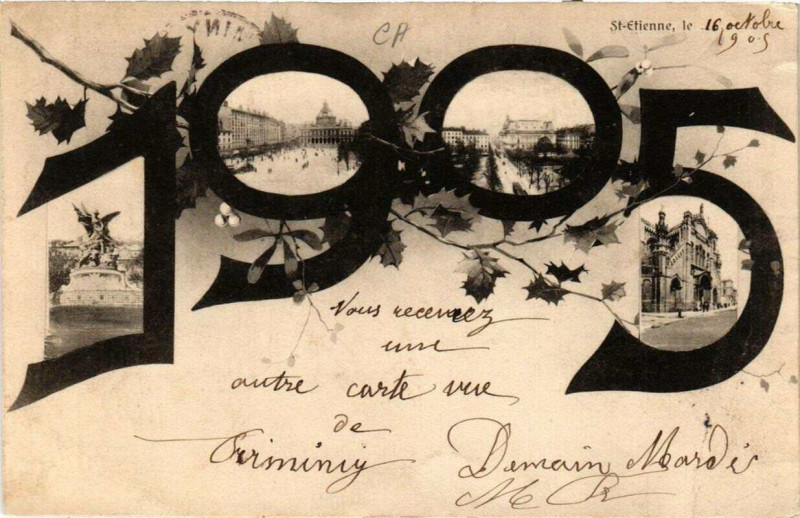 CA
St-Etienne, le 16 octobre
1905
1905
Vous recevrez
une
autre carte vue
de
Firminiy
Demain Mardi